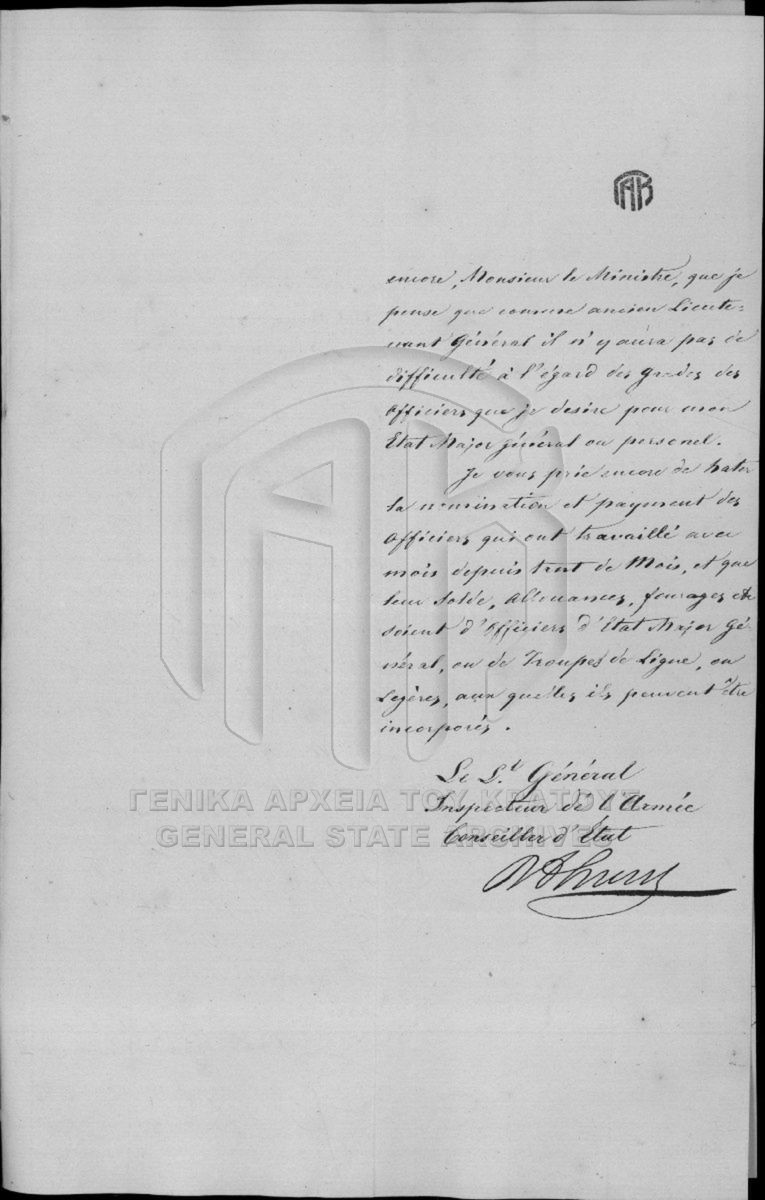 ΓΑΚ
encore, Monsieur le Ministre, que je
pense que comme ancien Lieute-
nant Général il n'y aura pas de
difficulté à l'égard des grades des
Officiers que je desire pour mon
Etat Major général ou personel.
Je vous prie encore de hater
la nomination et payment des
Officiers qui ont travaillé avec
mois depuis tant de Mois, et que
leur Solde, Allouances, fourages etc
soient d'Officiers d'Etat Major Gé-
néral, ou de Troupes de Ligne, ou
Legères, aux quelles ils peuvent être
incorporés.
Le Lt. Général
Inspecteur de l'Armée
Conseiller d'Etat
ΓΕΝΙΚΑ ΑΡΧΕΙΑ ΤΟΥ ΚΡΑΤΟΥΣ
GENERAL STATE ARCHIVES